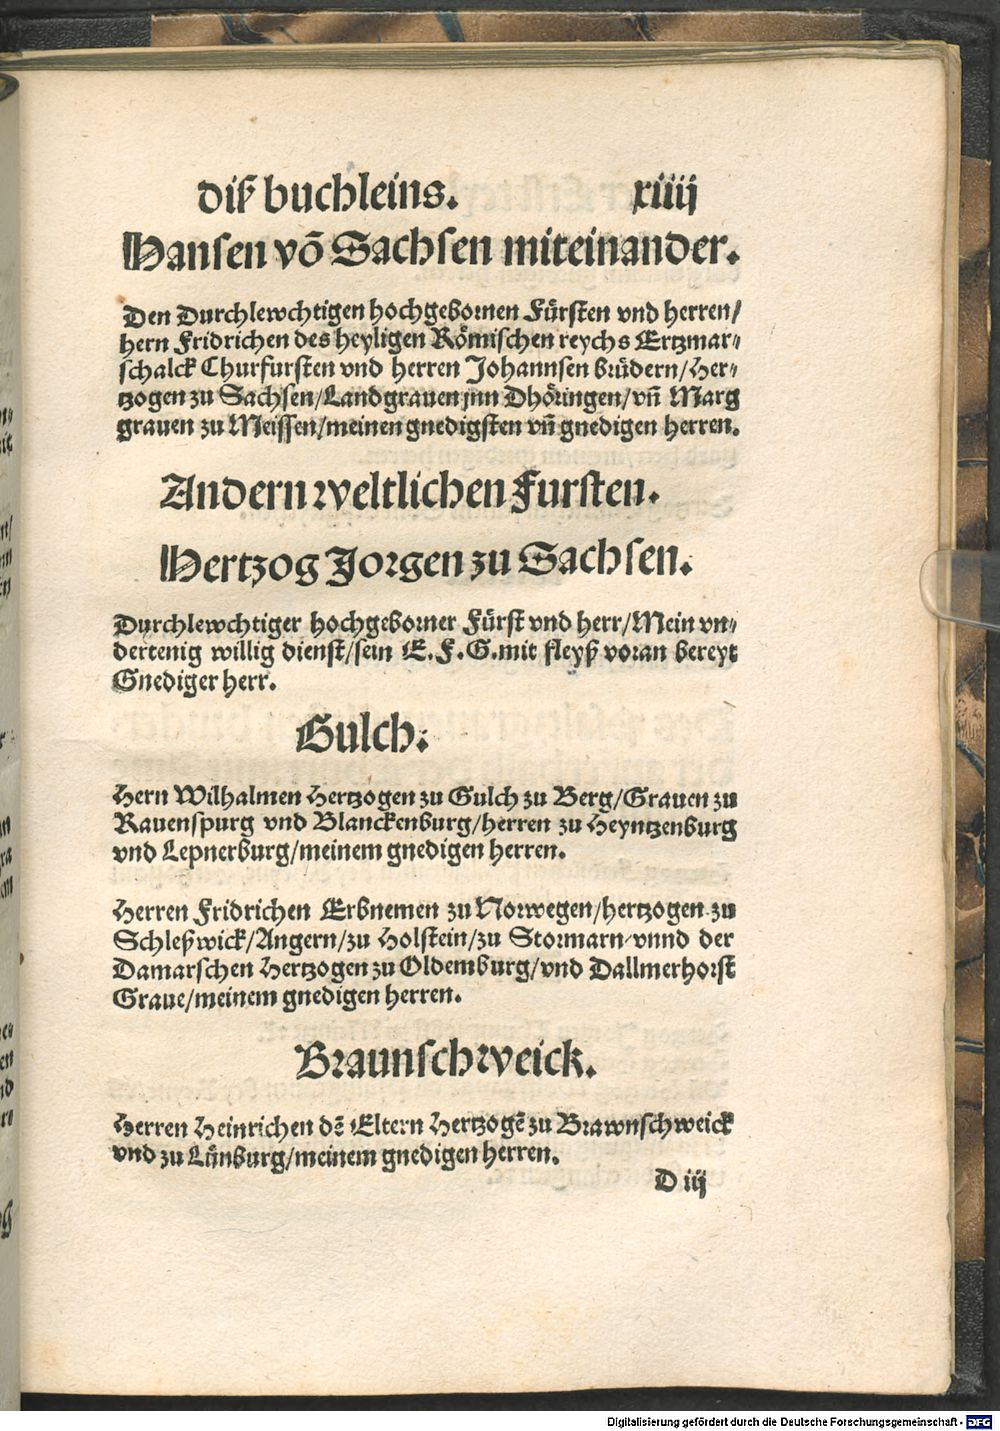 diß buchleins. xiiij
Hansen vō Sachsen miteinander.
Den Durchlewchtigen hochgebornen Fürsten vnd herren/
hern Fridrichen des heyligen Römischen reychs Ertzmar⸗
schalck Churfursten vnd herren Johannsen brüdern/Her⸗
tzogen zu Sachsen/Landgrauen jnn Dhöringen/vñ Marg
grauen zu Meissen/meinen gnedigsten vñ gnedigen herren.
Andern weltlichen Fursten.
Hertzog Jorgen zu Sachsen.
Durchlewchtiger hochgeborner Fürst vnd herr/Mein vn⸗
dertenig willig dienst/sein E.F.G.mit fleyß voran bereyt
Gnediger herr.
Gulch.
Hern Wilhalmen Hertzogen zu Gulch zu Berg/Grauen zu
Rauenspurg vnd Blanckenburg/herren zu Heyntzenburg
vnd Lepnerburg/meinem gnedigen herren.
Herren Fridrichen Erbnemen zu Norwegen/hertzogen zu
Schleßwick/Angern/zu Holstein/zu Stormarn/vnnd der
Damarschen Hertzogen zu Oldemburg/vnd Dallmerhorst
Graue/meinem gnedigen herren.
Braunschweick.
Herren Heinrichen dē Eltern Hertzogē zu Brawnschweick
vnd zu Lünburg/meinem gnedigen herren.
D iij
Digitalisierung gefördert durch die Deutsche Forschungsgemeinschaft - DFG